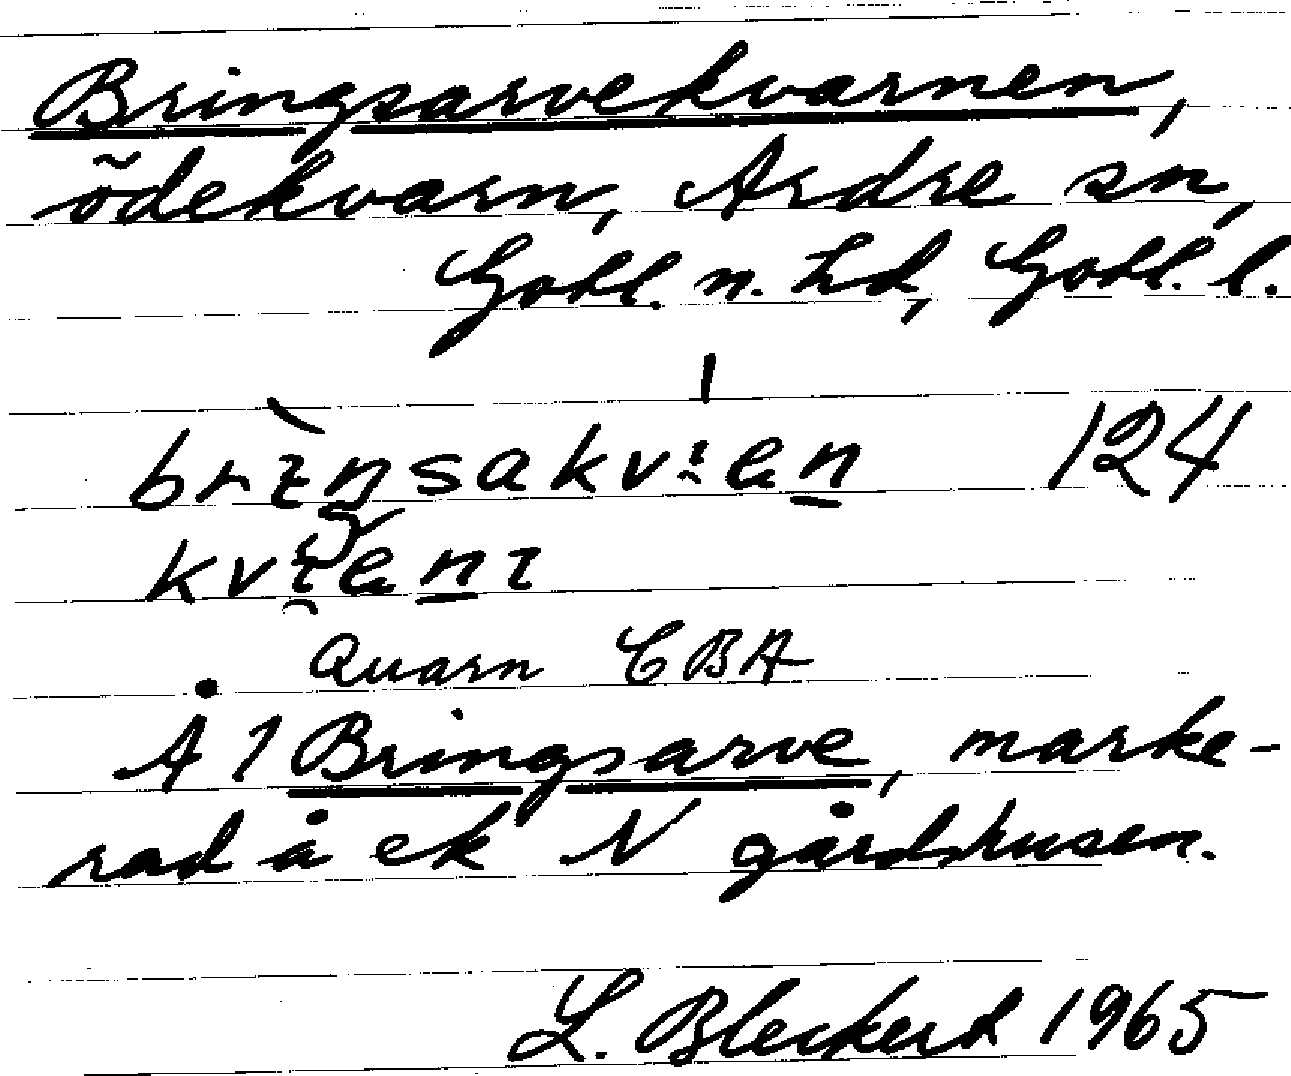 Bringsarvekvarnen,
ödekvarn, Ardre sn,
Gotl. n. hd, Gotl. l.
124
Quarn EBA
Å 1 Bringsarve, marke-
rad å ek N gårdshusen.
L. Bleckert 1965